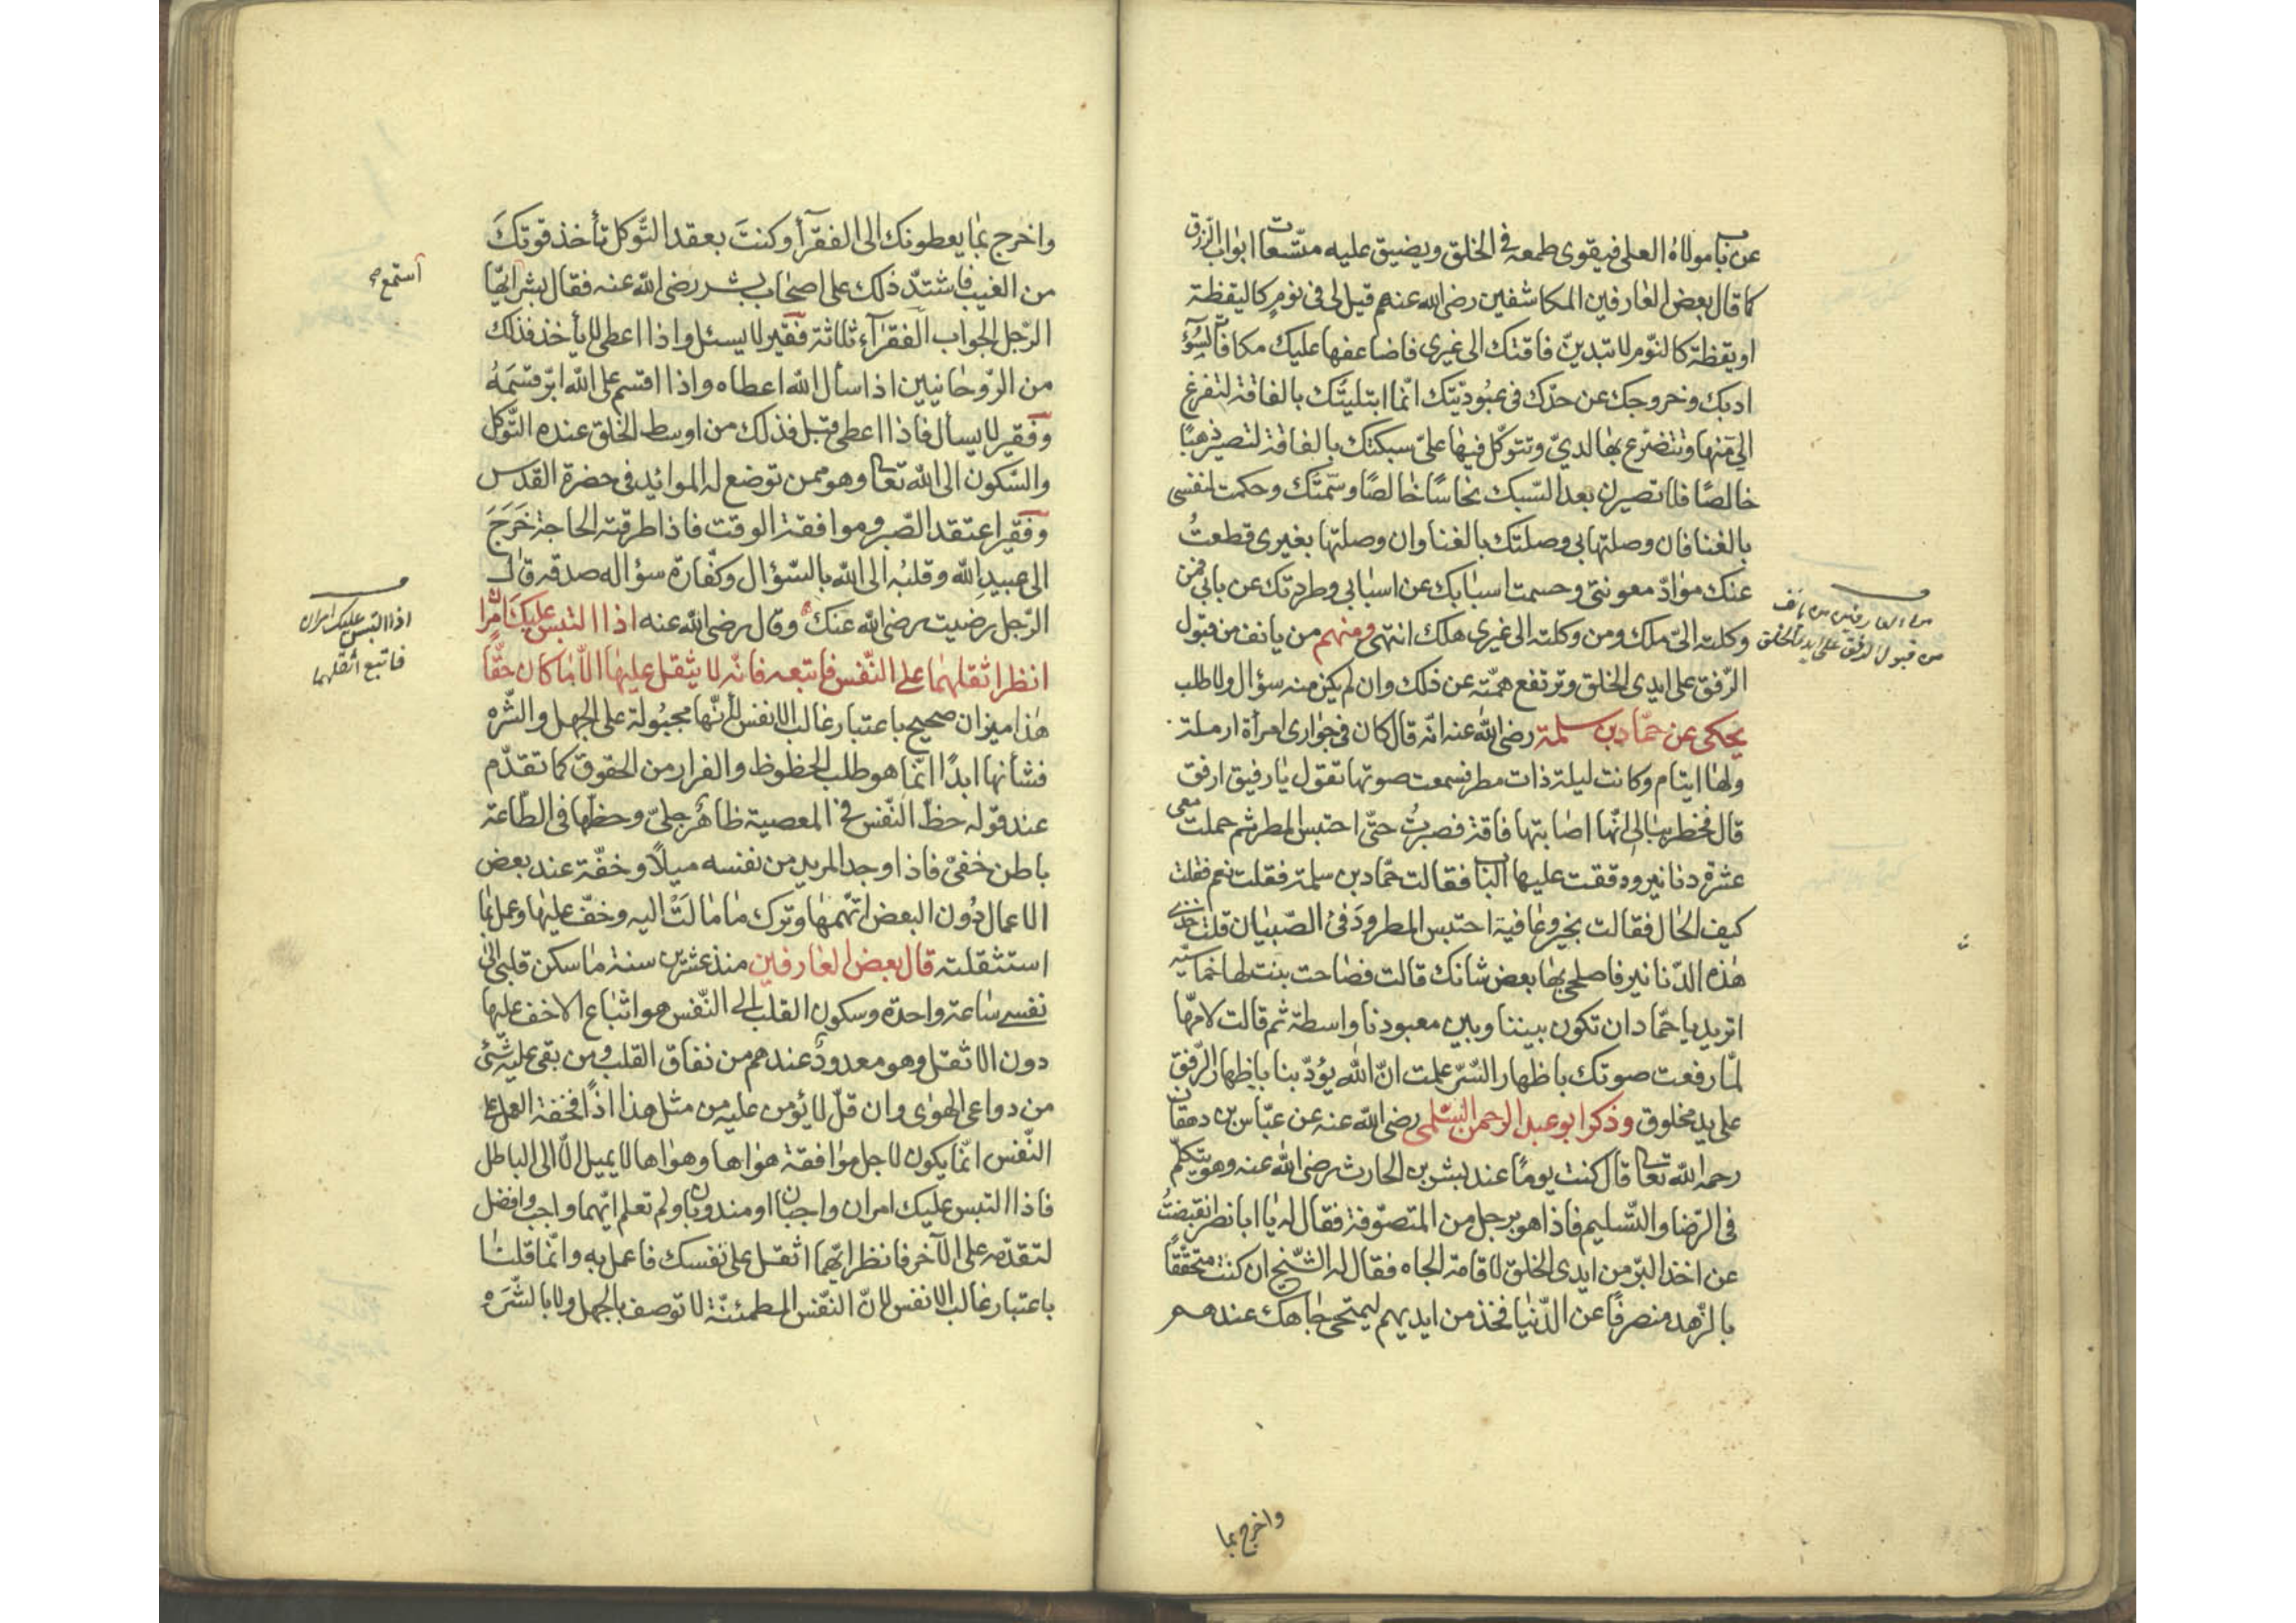 عن باب مولاه العلى فيقوى طمعه في الخلق ويضيق عليه متسعات ابواب الرزق
كما قال بعض العارفين المكاشفين رضى الله عنهم قيل لى فى نوم كاليقظة
او يقظة كالنوم لا تبدين فاقتك الى غيرى فاضاعفها عليك مكافأة لسوء
ادبك وخروجك عن حدك فى عبوديتك انما ابتليتك بالفاقة لتفزع
الى منها وتتضرع بها لدى وتتوكل فيها على سبكتك بالفاقة لتصير ذهبا
خالصا فلا تصيرن بعد السبك نحاسا خالصا وسمتك وحكمت لنفسى
بالغنا فان وصلتها بى وصلتك بالغنا وان وصلتها بغيرى قطعت
عنك مواد معونتى وحسمت اسبابك عن اسبابى وطردتك عن بابى فمن
وكلته الى ملك ومن وكلته الى غيرى هلك انتهى ومنهم من يانف من قبول
الرفق على ايدى الخلق وترتفع همته عن ذلك وان لم يكن منه سؤال ولا طلب
يحكى عن حماد بن سلمة رضى الله عنه انه قال كان فى جوارى امرأة ارملة
ولها ايتام وكانت ليلة ذات مطر فسمعت صوتها تقول يا رفيق ارفق
قال فخطر ببالى انها اصابتها فاقة فصبرت حتى احتبس المطر ثم حملت معى
عشرة دنانير ودققت عليها الباب فقالت حماد بن سلمة فقلت نعم فقلت
كيف الحال فقالت بخير وعافية احتبس المطر ودفئ الصبيان قلت خذى
هذه الدنانير فاصلحى بها بعض شانك قالت فصاحت بنت لها خماسية
اتريد يا حماد ان تكون بيننا وبين معبودنا واسطة ثم قالت لامها
لما رفعت صوتك باظهار السر علمت ان الله يؤدبنا باظهار الرفق
على يد مخلوق وذكر ابو عبد الرحمن السلمى رضى الله عنه عن عباس بن دهقان
رحمه الله تعالى قال كنت يوما عند بشر بن الحارث رضى الله عنه وهو يتكلم
فى الرضا والتسليم فاذا هو برجل من المتصوفة فقال له يا ابا نصر انقبضت
عن اخذ البر من ايدى الخلق لاقامة الجاه فقال له الشيخ ان كنت متحققا
بالزهد منصرفا عن الدنيا فخذ من ايديهم ليمتحى جاهك عندهم
واخرج بما
من العارفين من يانف
من قبول الرفق على ايدى الخلق
واخرج بما يعطونك الى الفقرآء وكنت بعقد التوكل تأخذ قوتك
من الغيب فاشتد ذلك على اصحاب بشر رضى الله عنه فقال بشر ايها
الرجل الجواب الفقرآء ثلاثة فقير لا يسئل واذا اعطى لا يأخذ فذلك
من الروحانيين اذا سأل الله اعطاه واذا اقسم على الله ابر قسمه
وفقير لا يسأل فاذا اعطى قبل فذلك من اوسط الخلق عنده التوكل
والسكون الى الله تعالى وهو ممن توضع له الموائد فى حضرة القدس
وفقير اعتقد الصبر وموافقة الوقت فاذا طرقته الحاجة خرج
الى عبيد الله وقلبه الى الله بالسؤال وكفارة سؤاله صدقه قال
الرجل رضيت رضى الله عنك وقال رضى الله عنه اذا التبس عليك امران
انظر اثقلهما على النفس فاتبعه فانه لا يثقل عليها الا ما كان حقا
هذا ميزان صحيح باعتبار غالب الانفس لأنها مجبولة على الجهل والشره
فشأنها ابدا انما هو طلب الحظوظ والفرار من الحقوق كما تقدم
عند قوله حظ النفس فى المعصية ظاهر جلى وحظها فى الطاعة
باطن خفى فاذا وجد المريد من نفسه ميلا وخفة عند بعض
الاعمال دون البعض اتهمها وترك ما مالت اليه وخف عليها وعمل بما
استثقلته قال بعض العارفين منذ عشرين سنة ما سكن قلبى الى
نفسى ساعة واحدة وسكون القلب الى النفس هو اتباع الاخف عليها
دون الاثقل وهو معدود عندهم من نفاق القلب ومن بقى عليه شئ
من دواعى الهوى وان قل لا يؤمن عليه من مثل هذا اذا فخفة العمل على
النفس انما يكون لاجل موافقة هواها وهواها لا يميل الا الى الباطل
فاذا التبس عليك امران واجبان او مندوبان ولم تعلم ايهما واجب وافضل
لتقدمه على الآخر فانظر ايهما اثقل على نفسك فاعمل به وانما قلنا
باعتبار غالب الانفس لان النفس المطمئنة لا توصف بالجهل ولا بالشره
استمع
اذا التبس عليك امران
فاتبع اثقلهما